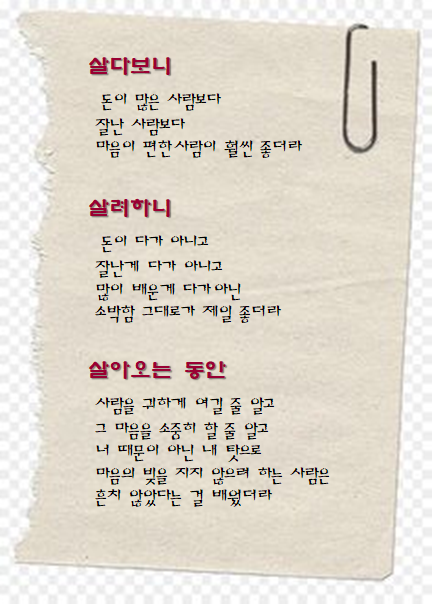 살다보니
돈이 많은 사람보다
잘난 사람보다
마음이 편한사람이 훨씬 좋더라
살려하니
돈이 다가 아니고
잘난게 다가 아니고
많이 배운게 다가아닌
소박함 그대로가 제일 좋더라
살아오는 동안
사람을 귀하게 여길 줄 알고
그 마음을 소중히 할 줄 알고
너 때문이 아닌 내 탓으로
마음의 빚을 지지 않으려 하는 사람은
흔치 않았다는 걸 배웠더라